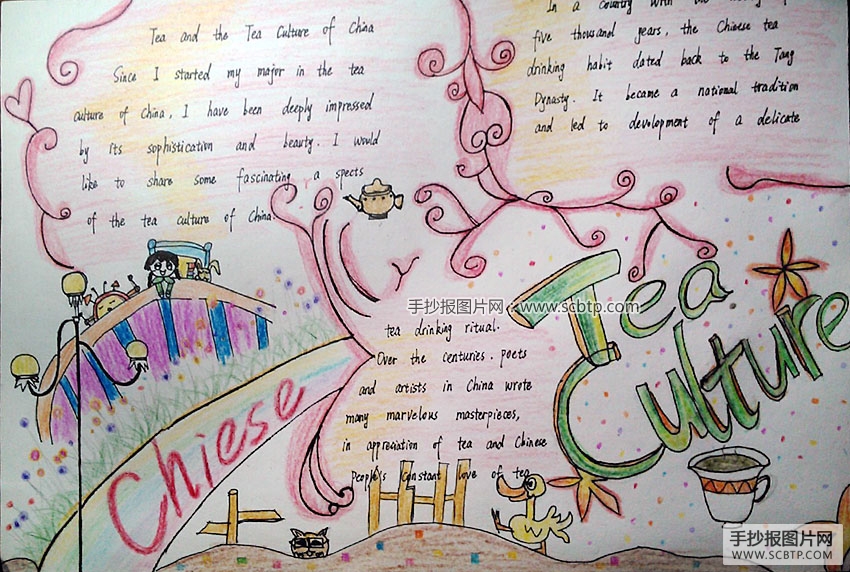 Tea and the Tea Culture of China
Since I started my major in the tea
culture of China, I have been deeply impressed
by its sophistication and beauty. I would
like to share some fascinating a spects
of the tea culture of China.
In a country with the
five thousand years, the Chinese tea
drinking habit dated back to the Tang
Dynasty. It became a national tradition
and led to devolopment of a delicate
手抄报图片网:www.scbtp.com
tea drinking ritual.
Over the centuries. peets
and artists in China wrote
many marvelous masterpieces,
in appreciation of tea and Chinese
People's constant love of tea
Tea
Culture
Chiese
手抄报图片网
WWW.SCBTP.COM